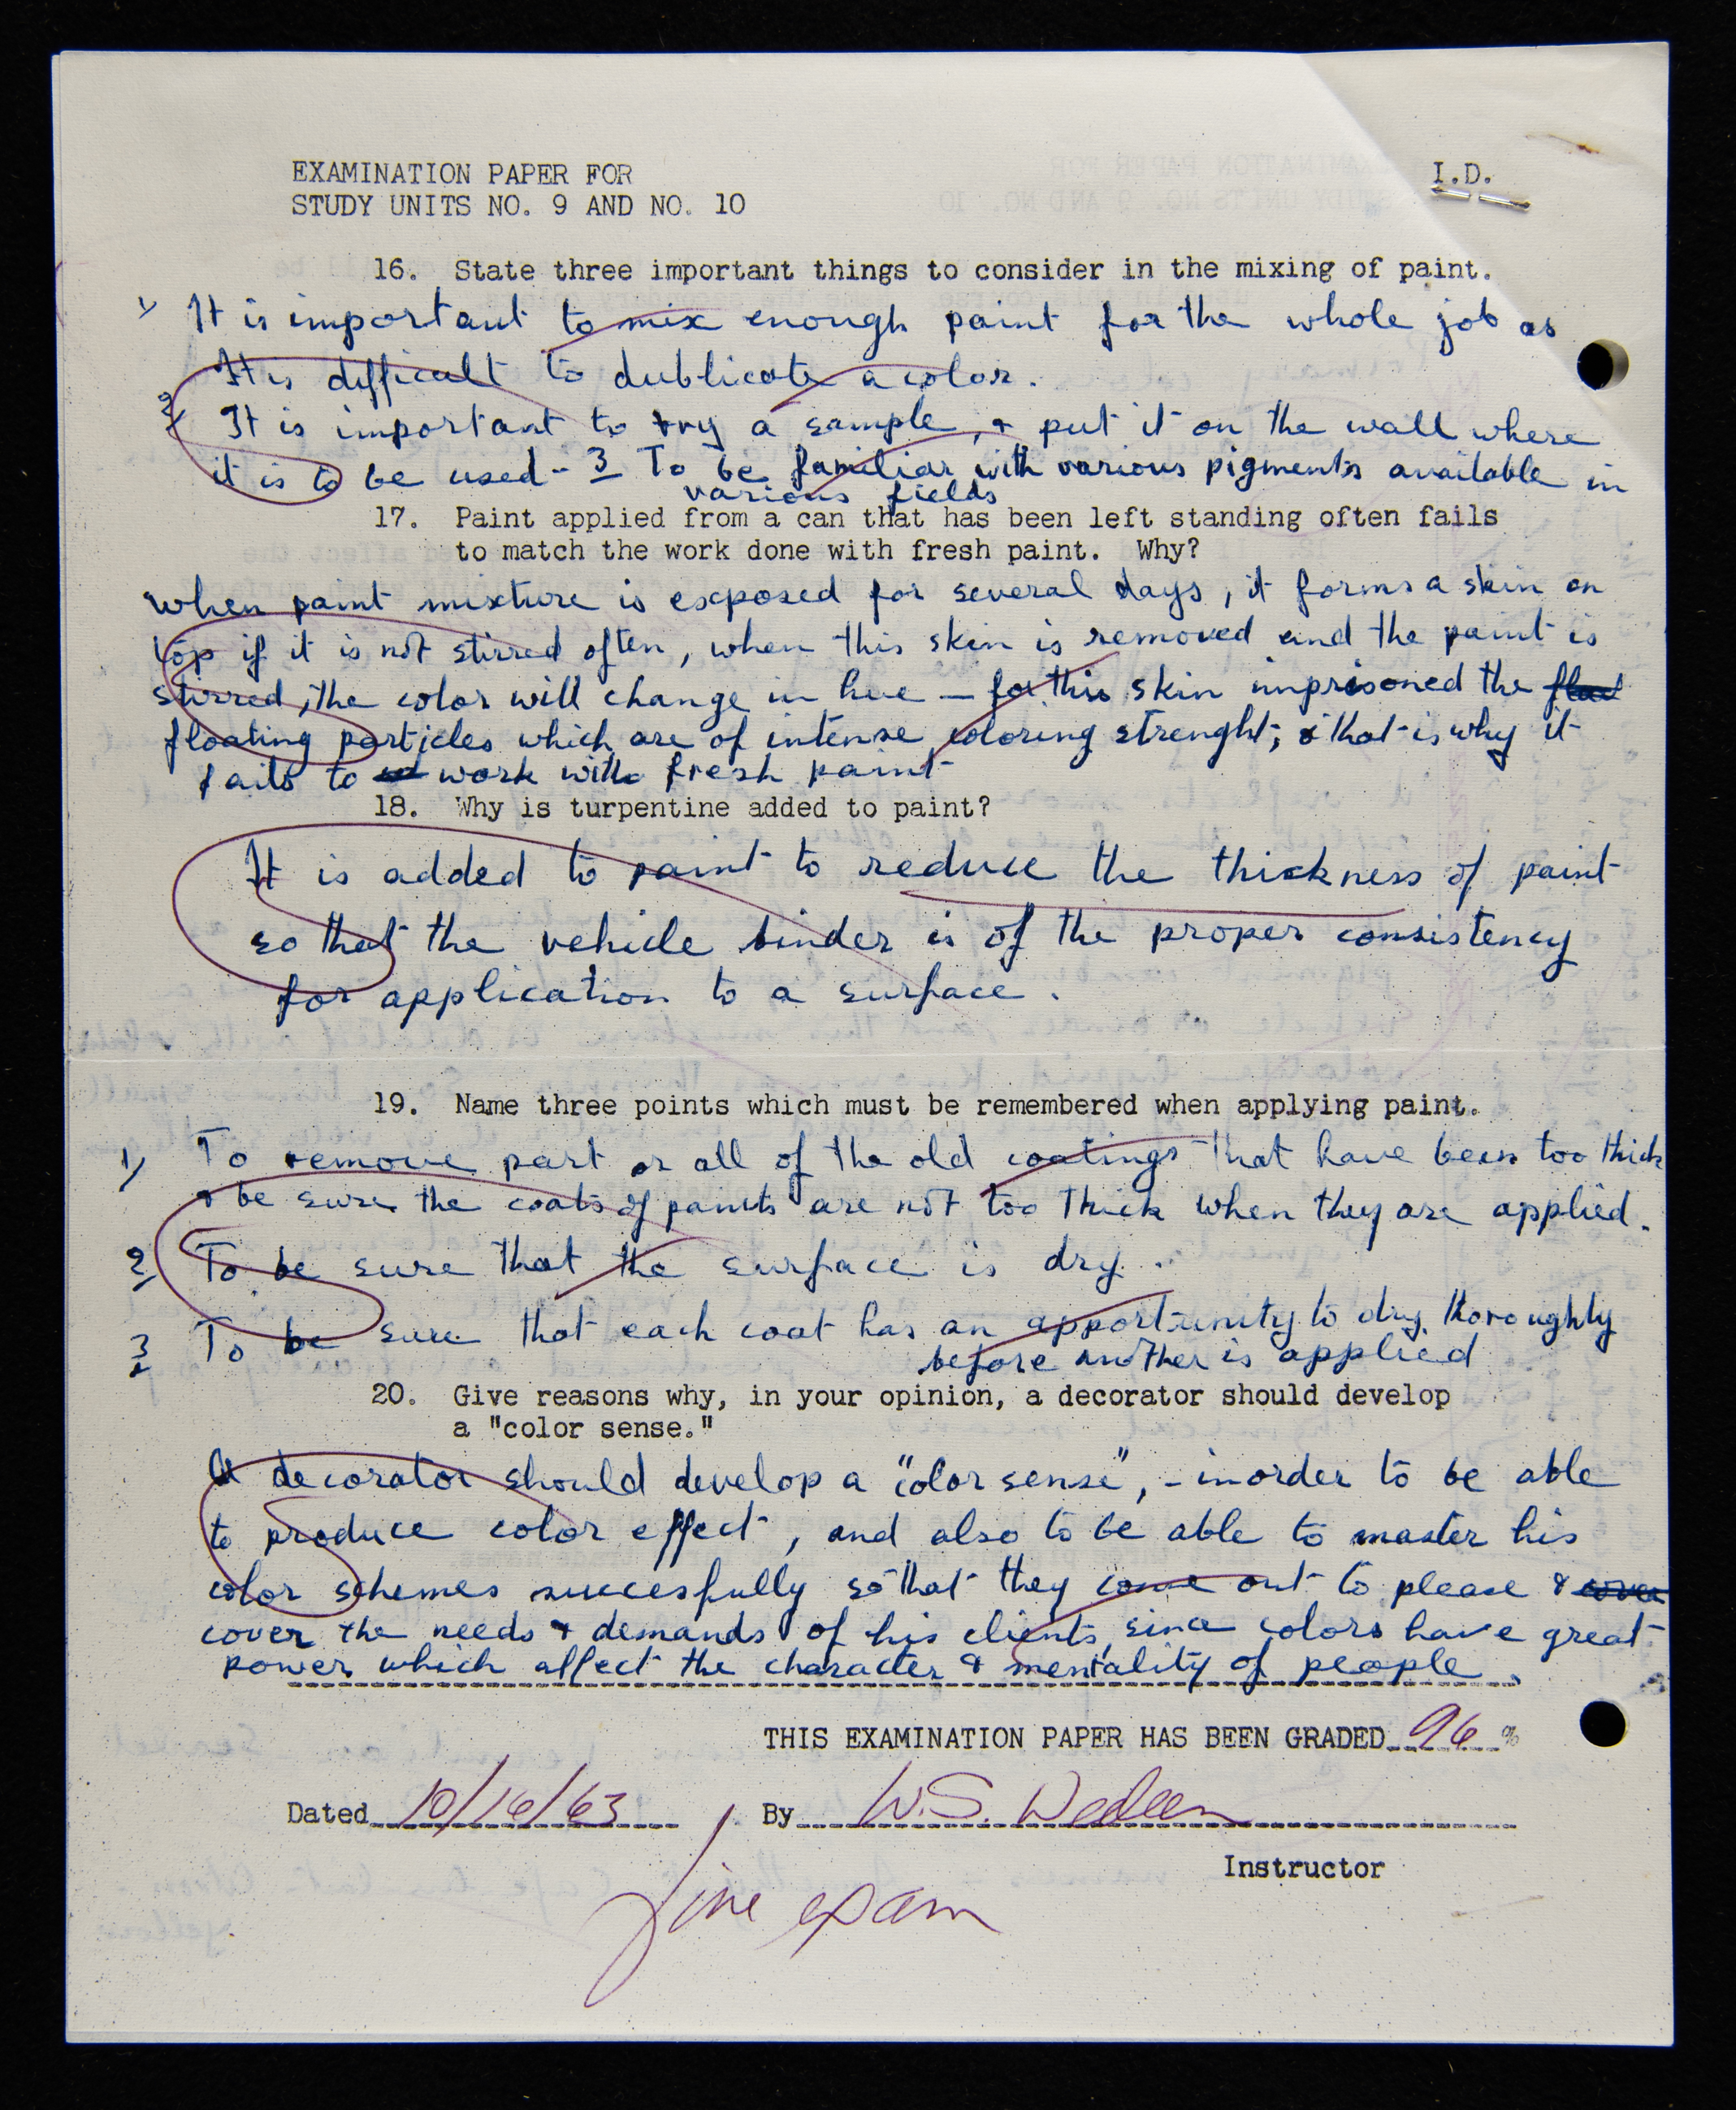 EXAMINATION PAPER FOR
I.D.
STUDY UNITS NO. 9 AND NO. 10
16. State three important things to consider in the mixing of paint.
1) It is important to mix enough paint for the whole job as
It is difficult to dublicate a color.
2 It is important to try a sample, & put it on the wall where
it is to be used - 3 To be familiar with various pigments available in
various fields
17. Paint applied from a can that has been left standing often fails
to match the work done with fresh paint. Why?
When paint mixture is exposed for several days, it forms a skin on
top if it is not stirred often, when this skin is removed and the paint is
stirred, the color will change in hue — for this skin imprisoned the
floating particles which are of intense coloring strenght; & that is why it
fails to work with fresh paint
18. Why is turpentine added to paint?
It is added to paint to reduce the thickness of paint
so that the vehicle binder is of the proper consistency
for application to a surface.
19. Name three points which must be remembered when applying paint.
1) To remove part or all of the old coatings that have been too thick
& be sure the coats of paints are not too thick when they are applied.
2 To be sure that the surface is dry.
3 To be sure that each coat has an opportunity to dry thoroughly
before another is applied
20. Give reasons why, in your opinion, a decorator should develop
a "color sense."
A decorator should develop a "color sense", - inorder to be able
to produce color effect, and also to be able to master his
color schemes succesfully so that they come out to please &
cover the needs & demands of his clients, since colors have great
power which affect the character & mentality of people.
THIS EXAMINATION PAPER HAS BEEN GRADED 96 %
Dated 10/16/63 By W.S.
Instructor
Fine exam